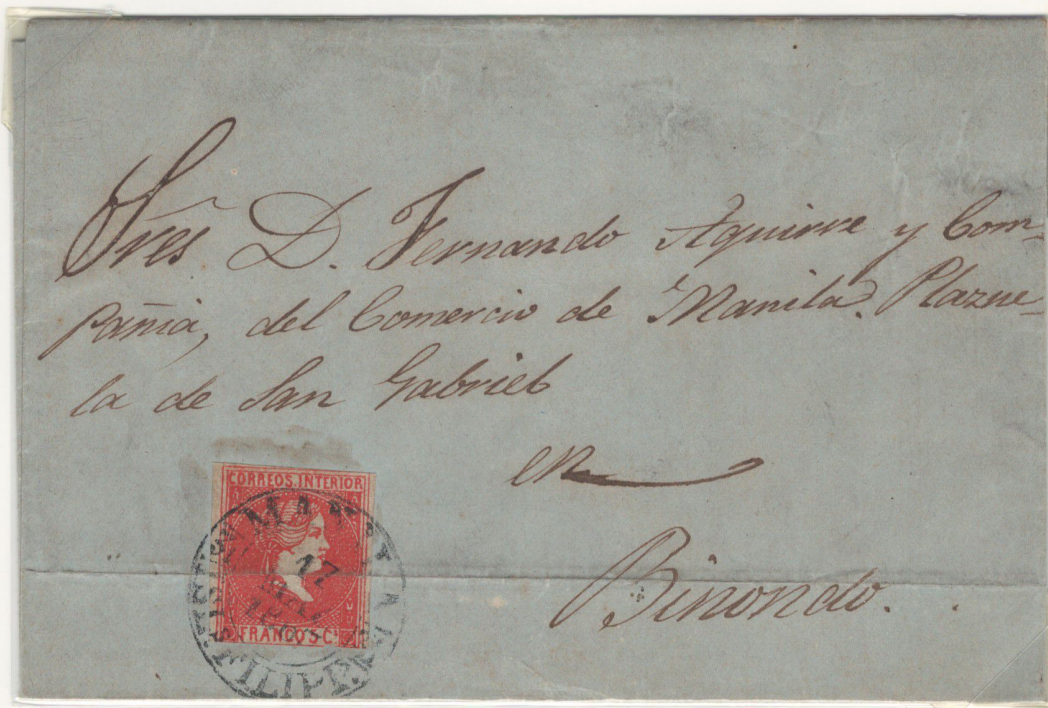 Sres D. Fernando Aguirre y Com-
pañia, del Comercio de Manila. Plazue-
la de San Gabriel
en
Binondo.
CORREOS.INTERIOR
FRANCO.5.Cs
MANILA
17
FILIPINAS